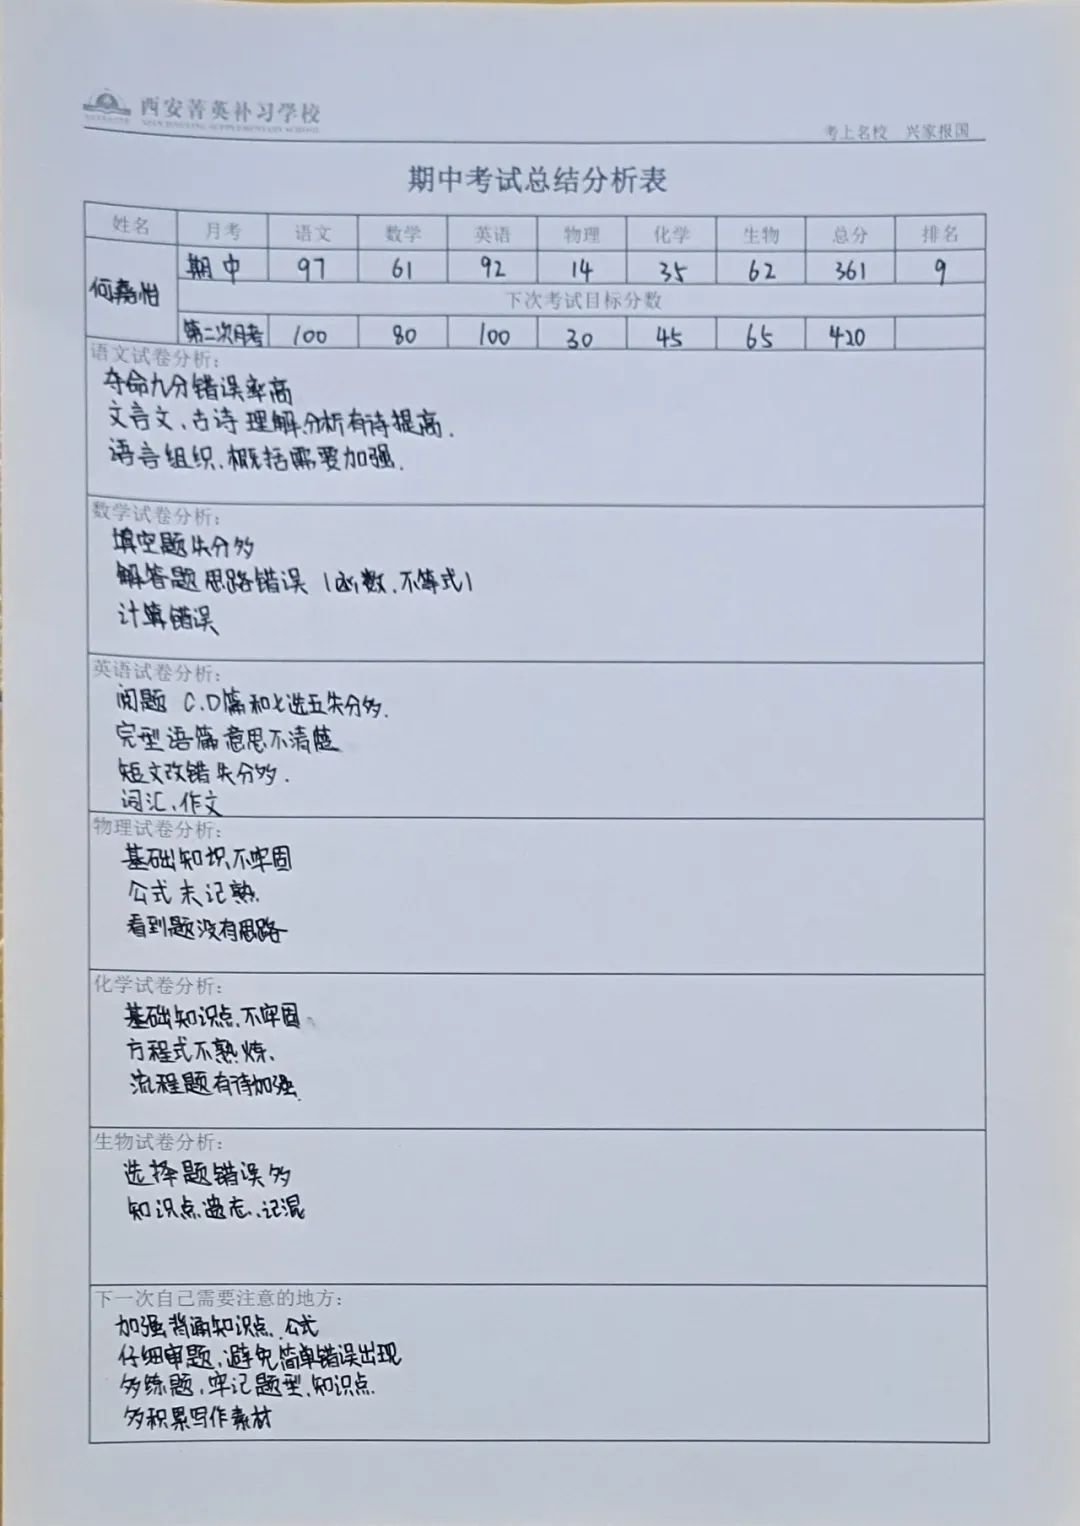 西安菁英补习学校
XI'AN JINGYING SUPPLEMENTARY SCHOOL
考上名校 兴家报国
期中考试总结分析表
姓名 月考 语文 数学 英语 物理 化学 生物 总分 排名
何嘉怡 期中 97 61 92 14 35 62 361 9
下次考试目标分数
第二次月考 100 80 100 30 45 65 420
语文试卷分析:
夺命九分错误率高
文言文、古诗理解分析有待提高.
语言组织、概括需要加强.
数学试卷分析:
填空题失分多
解答题思路错误(函数、不等式)
计算错误
英语试卷分析:
阅题 C.D篇和七选五失分多.
完型语篇意思不清楚
短文改错失分多.
词汇、作文
物理试卷分析:
基础知识不牢固
公式未记熟.
看到题没有思路
化学试卷分析:
基础知识点不牢固.
方程式不熟炼、
流程题有待加强.
生物试卷分析:
选择题错误多
知识点遗忘、记混
下一次自己需要注意的地方:
加强背诵知识点、公式
仔细审题、避免简单错误出现
多练题、牢记题型、知识点.
多积累写作素材